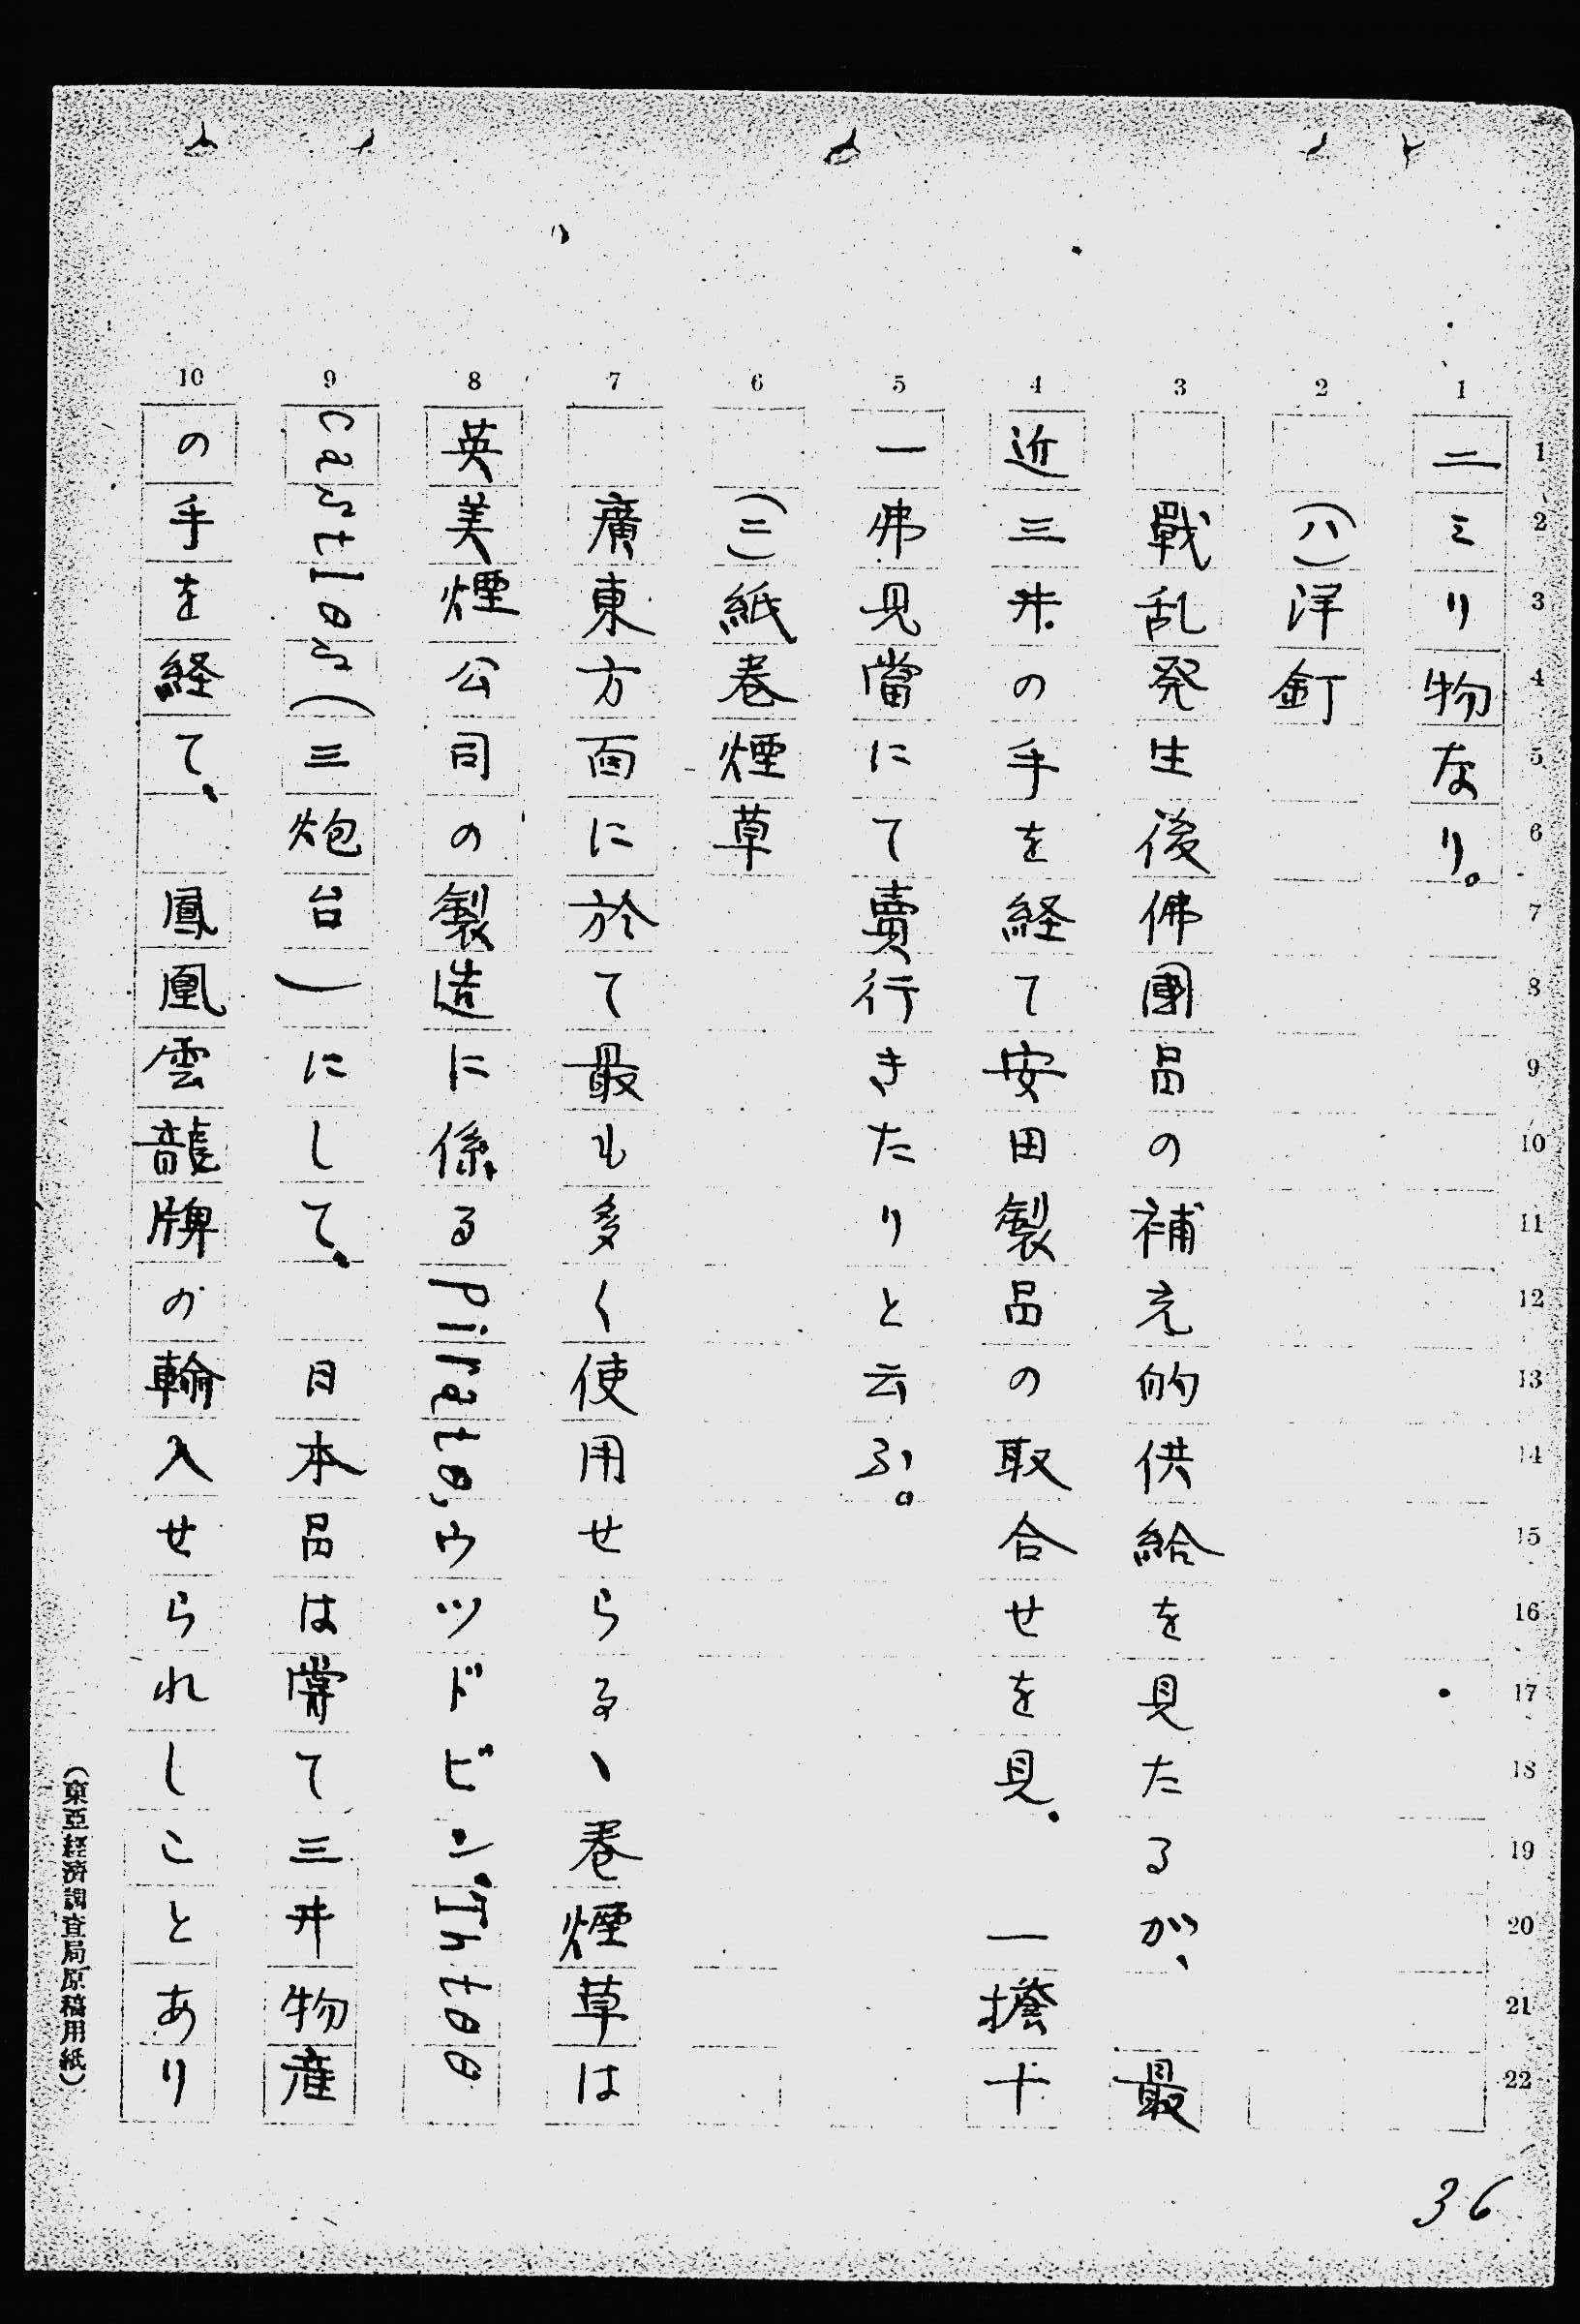 36
1 2 3 4 5 6 7 8 9 10
1 2 3 4 5 6 7 8 9 10 11 12 13 14 15 16 17 18 19 20 21 22
二ミリ物なり。
(ハ)洋釘
戰乱発生後佛國品の補充的供給を見たるが、最
近三井の手を経て安田製品の取合せを見、一擔十
一弗見當にて賣行きたりと云ふ。
(ニ)紙巻煙草
廣東方面に於て最も多く使用せらるゝ巻煙草は
英美煙公司の製造に係るPirate,ウツドビン、Three
castles(三炮台)にして、日本品は嘗て三井物産
の手を経て、鳳凰雲龍牌の輸入せられしことあり
(東亞経済調査局原稿用紙)